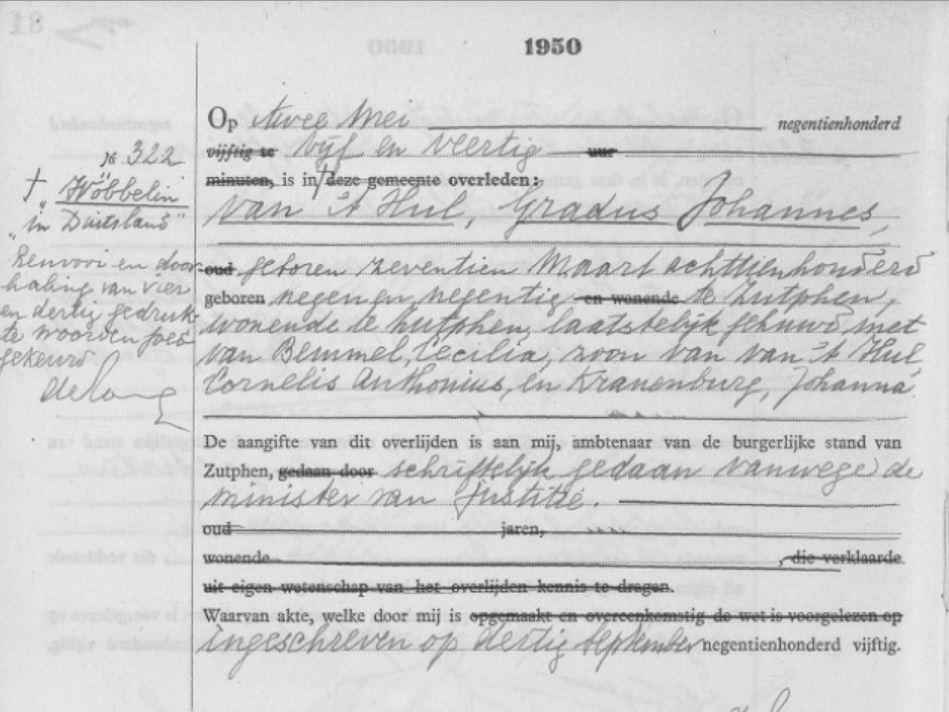 81
1950
Op twee Mei negentienhonderd
№ 322
vijftig te vijf en veertig uur
minuten, is in ꜒ deze gemeente overleden:
† "Wöbbelin
in Duitsland"
van 't Hul, Gradus Johannes,
Renvooi en door-
haling van vier
en dertig gedruk-
te woorden goed-
gekeurd.
de Lang
oud, geboren zeventien Maart achttienhonderd
geboren negen en negentig en wonende te Zutphen,
wonende te Zutphen, laatstelijk gehuwd met
van Bemmel, Cecilia, zoon van van 't Hul
Cornelis Anthonius, en Kranenburg, Johanna.
De aangifte van dit overlijden is aan mij, ambtenaar van de burgerlijke stand van
Zutphen, gedaan door schriftelijk gedaan vanwege de
minister van Justitie.
oud jaren,
wonende , die verklaarde
uit eigen wetenschap van het overlijden kennis te dragen.
Waarvan akte, welke door mij is opgemaakt en overeenkomstig de wet is voorgelezen op
ingeschreven op dertig September negentienhonderd vijftig.